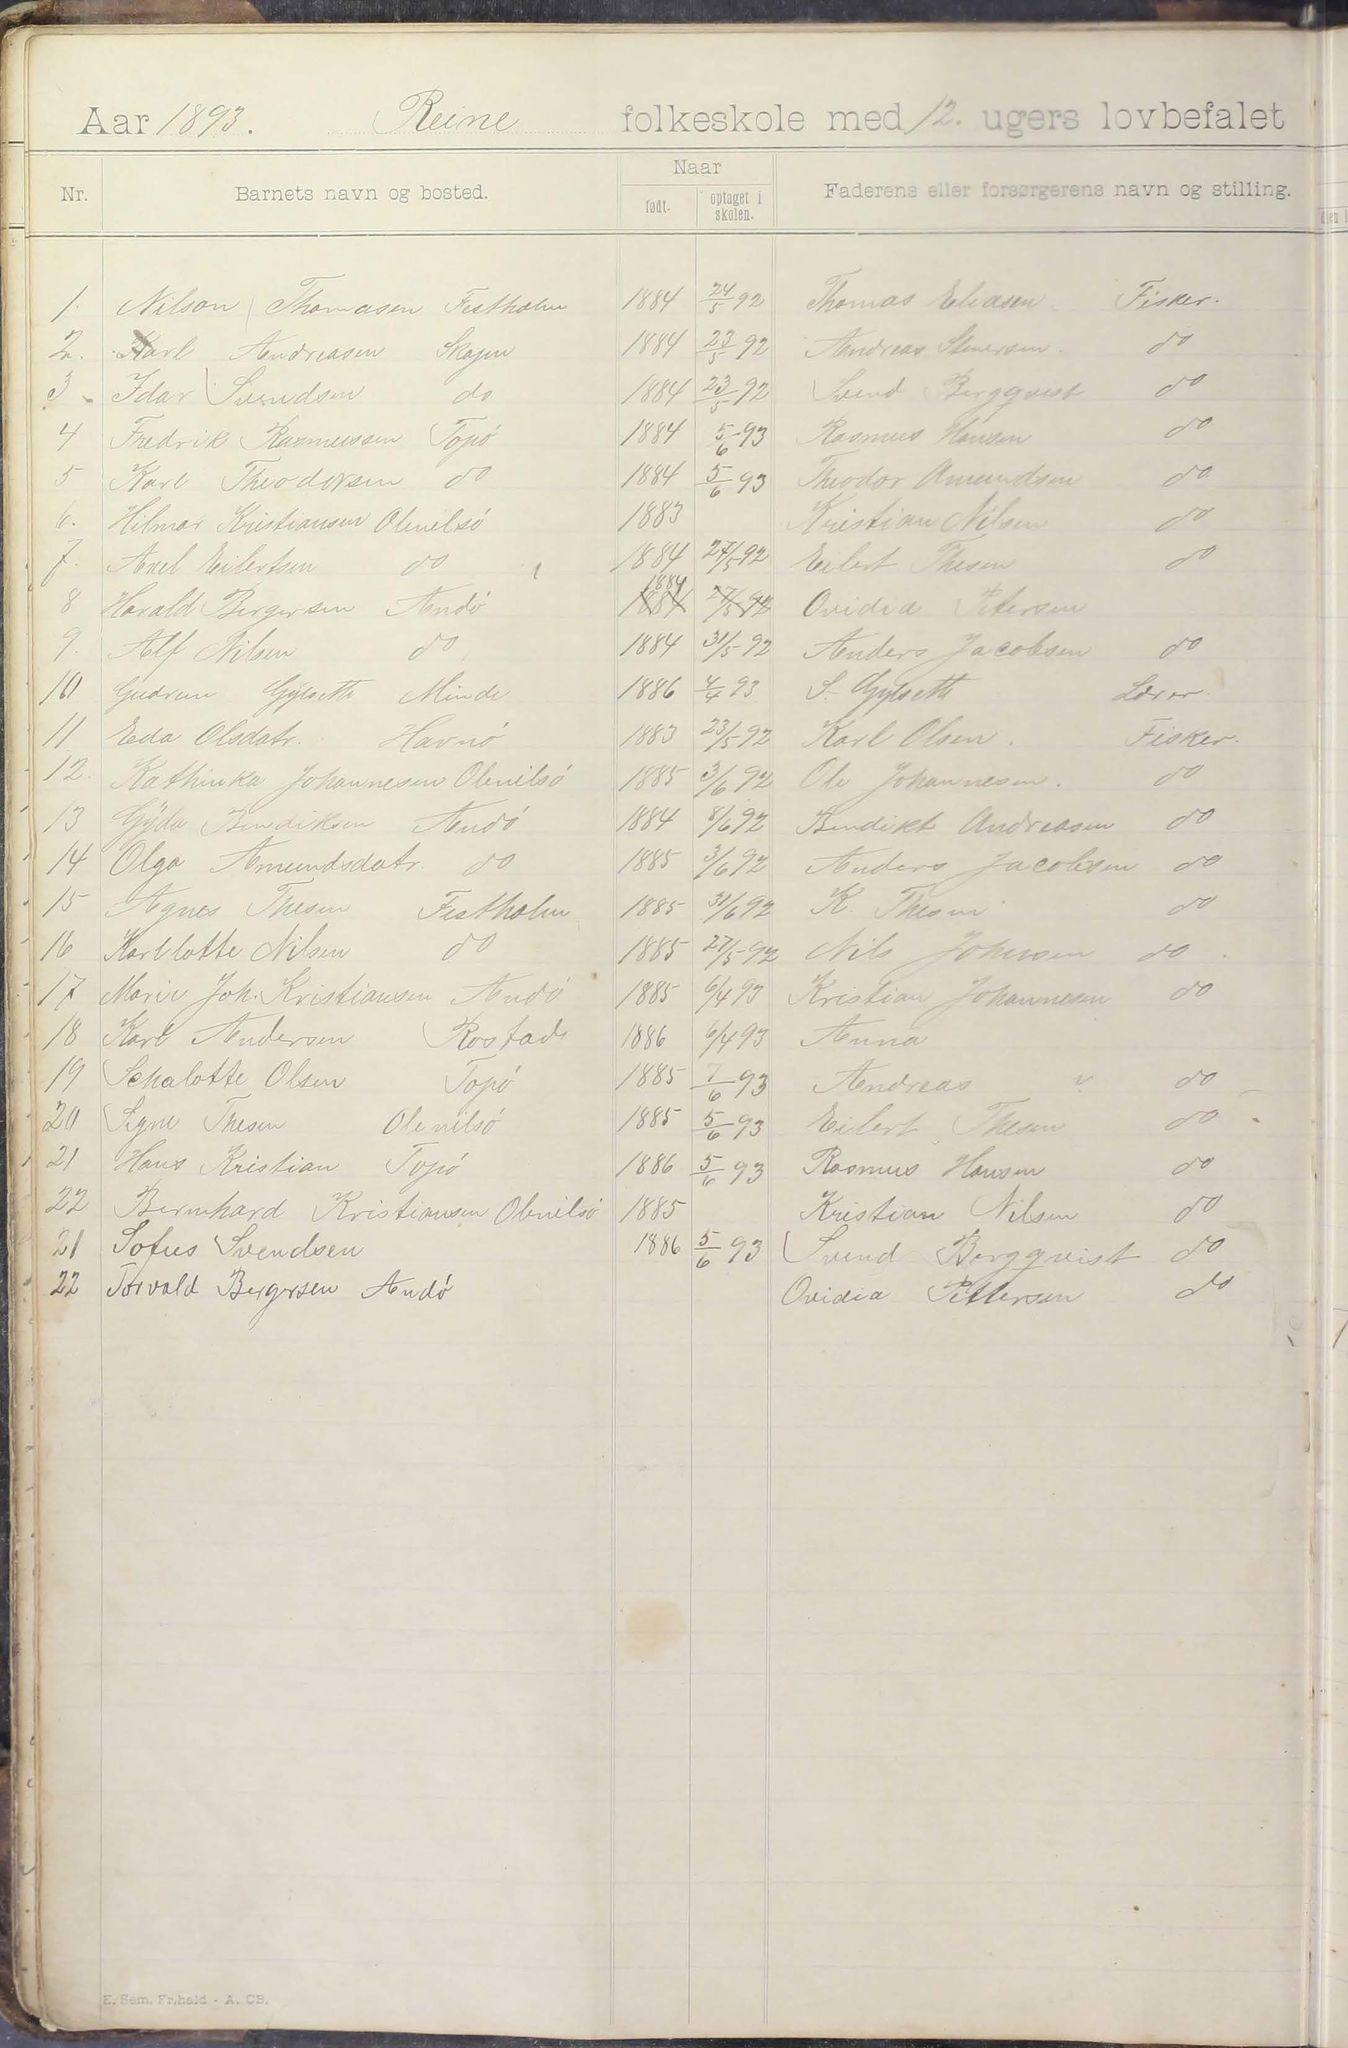 Aar 1893. Reine folkeskole med 12. ugers lovbefalet
Nr. Barnets navn og bosted. Naar født. optaget i skolen. Faderens eller forsørgerens navn og stilling.
1. Nilson Thomasen Festholm 1884 24/5 92 Thomas Eliasen Fisker.
2. Karl Andreasen Skajen 1884 23/5 92 Andreas Stenersen. do
3 Idar Svendsen do 1884 23/5 92 Svend Bergqvist do
4 Fredrik Rasmussen Topö 1884 5/6 93 Rasmus Hansen do
5 Karl Theodorsen do 1884 5/6 93 Theodor Amundsen do
6. Hilmar Kristiansen Olenilsö 1883 Kristian Nilsen do
7. Axel Eilertsen do 1884 27/5 92 Eilert Thesen do
8 Harald Bergersen Andö 1884 1884 27/5 92 Ovidia Petersen
9. Alf Nilsen do 1884 31/5 92 Anders Jacobsen do
10 Gudrun Gylseth Minde 1886 4/4 93 S. Gylseth Lærer.
11 Eda Olsdatr. Havnö 1883 23/5 92 Karl Olsen. Fisker.
12. Kathinka Johannesen Olenilsö 1885 3/6 92 Ole Johannesen. do
13 Gÿda Bendiksen Andö 1884 8/6 92 Bendikt Andreasen do
14 Olga Amundsdatr. do 1885 3/6 92 Anders Jacobsen do
15 Agnes Thesen Festholm 1885 31/6 92 K. Thesen do
16 Karllotte Nilsen do 1885 27/5 92 Nils Johnsen do
17 Marie Joh. Kristiansen Andö 1885 6/4 93 Kristian Johannesen do
18 Karl Andersen Rostad 1886 6/4 93 Anna
19 Schalotte Olsen Topö 1885 7/6 93 Andreas do
20 Signe Thesen Olenilsö 1885 5/6 93 Eilert Thesen do
21 Hans Kristian Topö 1886 5/6 93 Rasmus Hansen do
22 Bernhard Kristiansen Olenilsö 1885 Kristian Nilsen do
21 Sofus Svendsen 1886 5/6 93 Svend Bergqvist do
22 Torvald Bergersen Andö Ovidia Pettersen do
E. Sem, Fr.hald - A. CB.